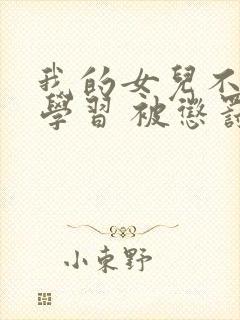 我的女兒不
學習 被懲罰
小東野